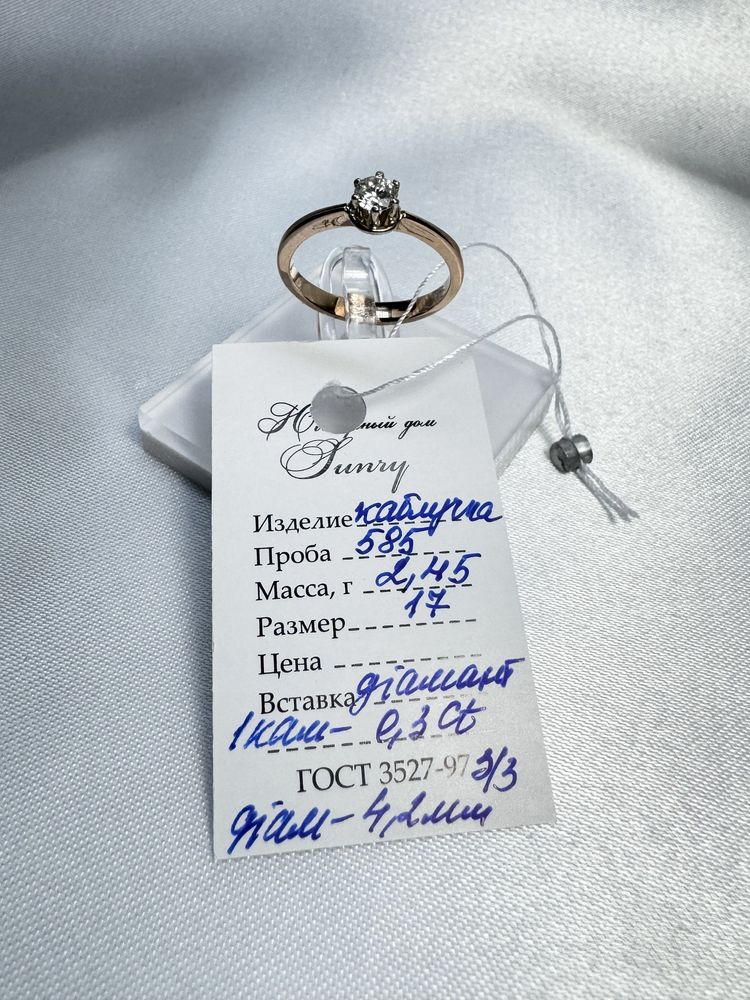 дом
Sunry
Изделие каблучка
Проба 585
Масса, г 2,45
Размер 17
Цена
Вставка діамант
1кам- 0,3 Ct
ГОСТ 3527-97 3/3
діам- 4,2мм